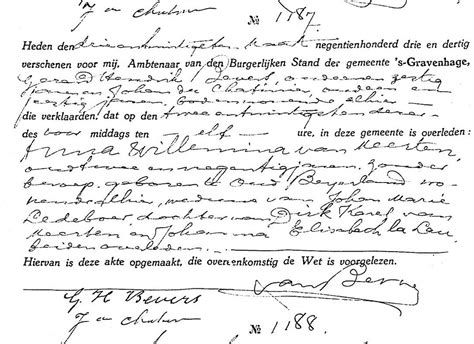 J de Chatinier
№ 1187
Heden den drie en twintigsten Maart negentienhonderd drie en dertig
verschenen voor mij, Ambtenaar van den Burgerlijken Stand der gemeente 's-Gravenhage,
Gerard Hendrik Bevers, oud een en zestig
jaren en Johan de Chatinier, oud een en
zestig jaren, beiden wonende alhier
die verklaarden, dat op den twee en twintigsten dezer
des voor middags ten elf ure, in deze gemeente is overleden:
Anna Willemina van Meerten,
oud twee en negentig jaren, zonder
beroep, geboren te Oud Beyerland wo-
nende alhier, weduwe van Johan Marie
Ledeboer, dochter van Dirk Karel van
Meerten en Johanna Elisabeth la Lau
beiden overleden.
Hiervan is deze akte opgemaakt, die overeenkomstig de Wet is voorgelezen.
G. H. Bevers
J de Chatinier
№ 1188.